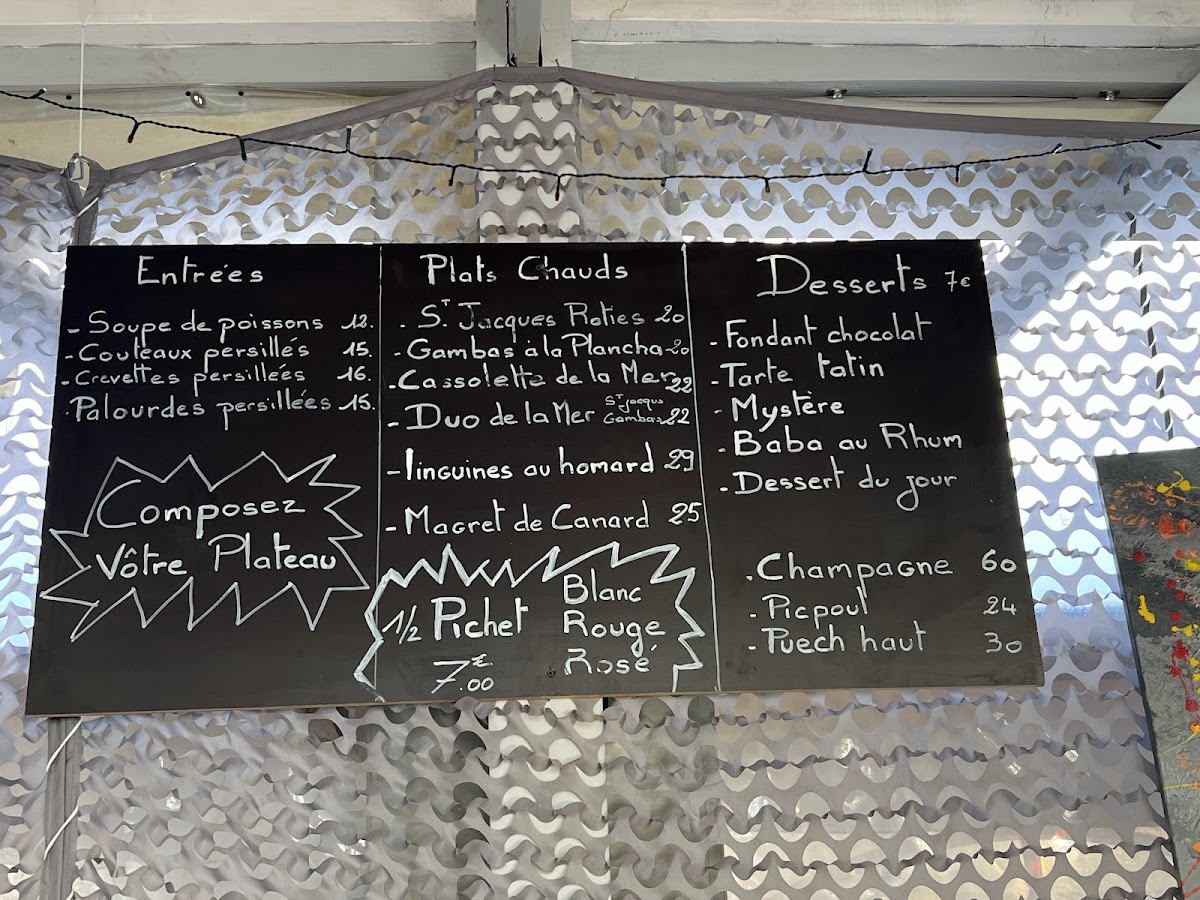 Entrées
- Soupe de poissons 12.
- Couteaux persillés 15.
- Crevettes persillées 16.
. Palourdes persillées 15.
Composez
Vôtre Plateau
Plats Chauds
. ST Jacques Roties 20
- Gambas à la Plancha 20
- Cassolette de la Mer 22
- Duo de la Mer ST jacque Gambas 22
- linguines au homard 29
- Magret de Canard 25
1/2 Pichet
7.00€
Blanc
Rouge
Rosé
Desserts 7€
- Fondant chocolat
- Tarte tatin
- Mystère
- Baba au Rhum
- Dessert du jour
. Champagne 60
- Picpoul 24
- Puech haut 30